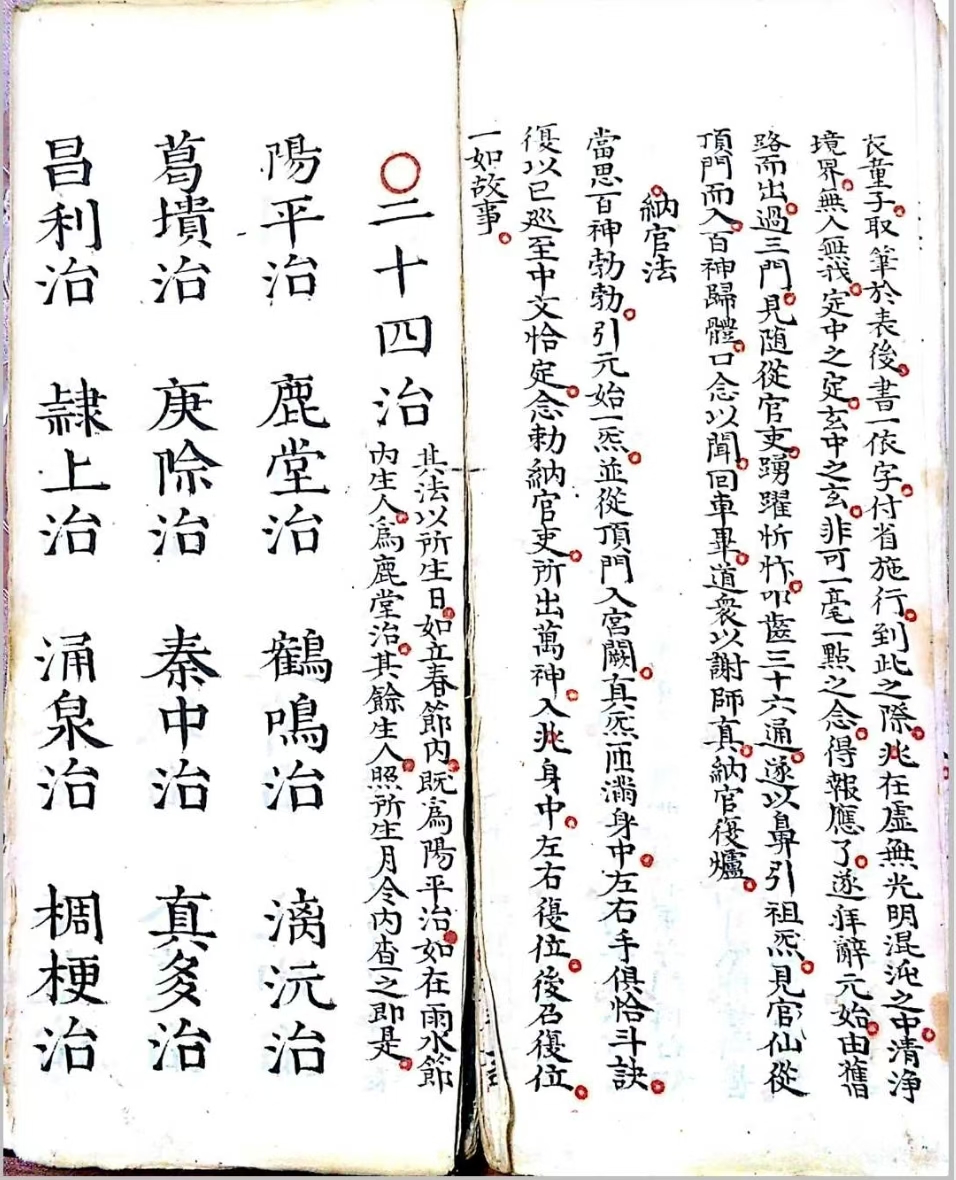 長童子取筆於表後書一依字付省施行到此之際兆在虛無光明混沌之中清淨
境界無人無我定中之定玄中之玄非可一毫一點之念得報應了遂拜辭元始由舊
路而出過三門見随從官吏踴躍忻忭叩齒三十六通遂以鼻引祖炁見官仙從
頂門而入百神歸體口念以聞回車畢道衆以謝師真納官復爐
納官法
當思百神勃勃引元始一炁並從頂門入宮闕真炁帀滿身中左右手俱恰斗訣
復以巳巡至中文恰定念勅納官吏所出萬神入兆身中左右復位後召復位
一如故事
○二十四治
其法以所生日如立春節内既為陽平治如在雨水節
内生人為鹿堂治其餘生人照所生月令内查之即是
陽平治 鹿堂治 鶴鳴治 漓沅治
葛璝治 庚除治 秦中治 真多治
昌利治 隸上治 涌泉治 椆梗治